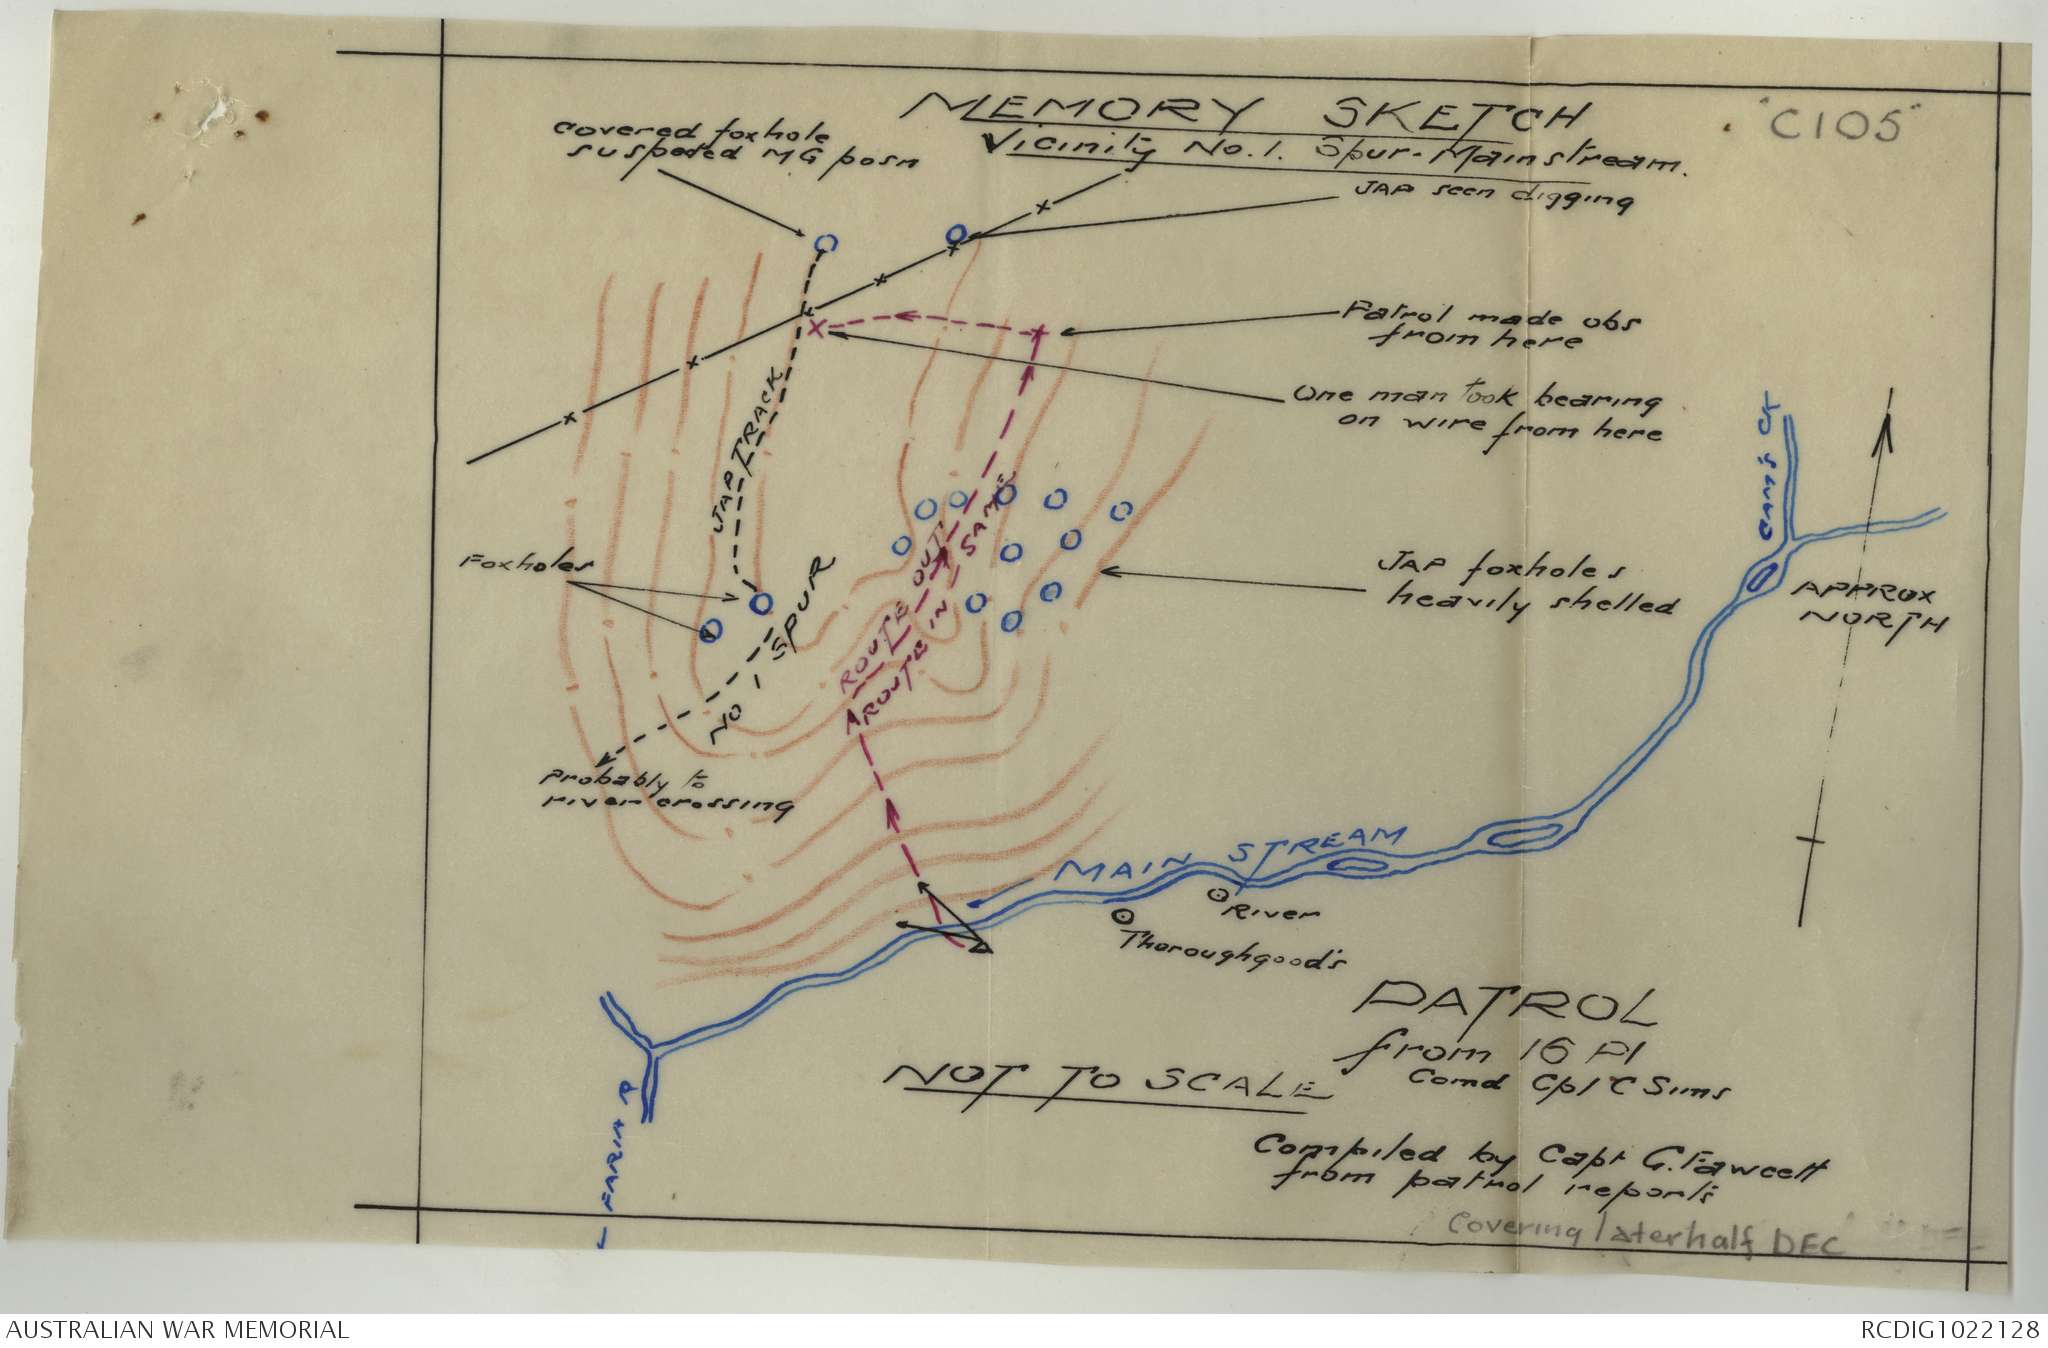 MEMORY SKETCH
Vicinity No. 1. Spur-Mainstream.
"C105"
covered foxhole
suspected MG posn
JAP seen digging
Patrol made obs
from here
One man took bearing
on wire from here
JAP TRACK
Foxholes
NO 1 SPUR
ROUTE OUT
ROUTE IN SAME
JAP foxholes
heavily shelled
APPROX
NORTH
Probably to
river crossing
MAIN STREAM
River
Thoroughgood's
PATROL
from 16 Pl
Comd Cpl C Sims
NOT TO SCALE
Compiled by Capt G. Fawcett
from patrol reports
Covering laterhalf DEC
AUSTRALIAN WAR MEMORIAL
RCDIG1022128